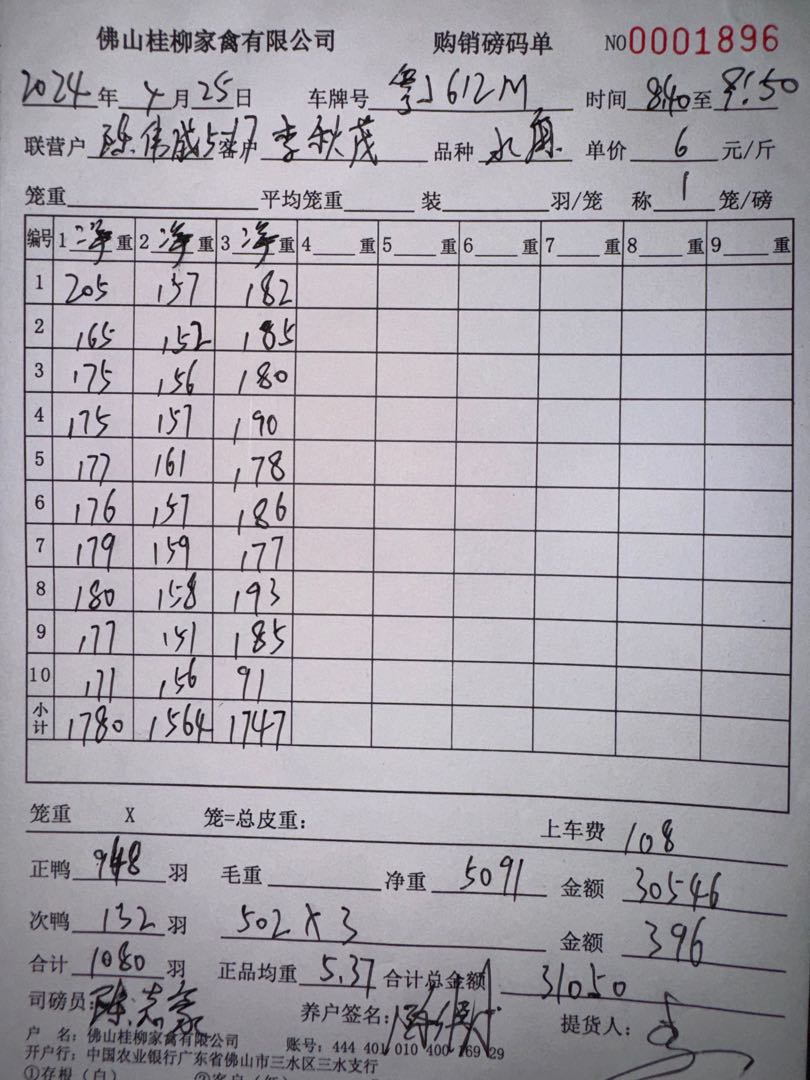 佛山桂柳家禽有限公司 购销磅码单 NO0001896
2024年4月25日 车牌号 粤J612M 时间 8:40至9:50
联营户 陈伟成517 客户 李秋茂 品种 单价 6 元/斤
笼重 平均笼重 装 羽/笼 称 1 笼/磅
编号 1 净重 2 净重 3 净重 4 重 5 重 6 重 7 重 8 重 9 重
1 205 157 182
2 165 152 185
3 175 156 180
4 175 157 190
5 177 161 178
6 176 157 186
7 179 159 177
8 180 158 193
9 177 151 185
10 171 156 91
小计 1780 1564 1747
笼重 X 笼=总皮重: 上车费 108
正鸭 948 羽 毛重 净重 5091 金额 30546
次鸭 132 羽 502X3 金额 396
合计 1080 羽 正品均重 5.37 合计总金额 31050
司磅员: 陈志豪 养户签名: 提货人:
户 名: 佛山桂柳家禽有限公司 账号: 444 401 010 400 169 29
开户行: 中国农业银行广东省佛山市三水区三水支行
①存根(白) ②客户(红)